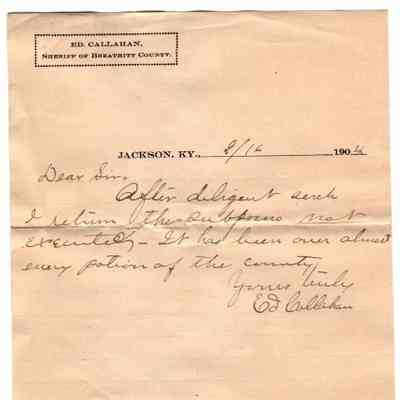 ED. CALLAHAN,
SHERIFF OF BREATHITT COUNTY.
JACKSON, KY., 2/16 1904
Dear Sir.
After diligent serch
I return the subpoenas not
executed - It has been over almost
every potion of the county
Yours truly
Ed Callahan